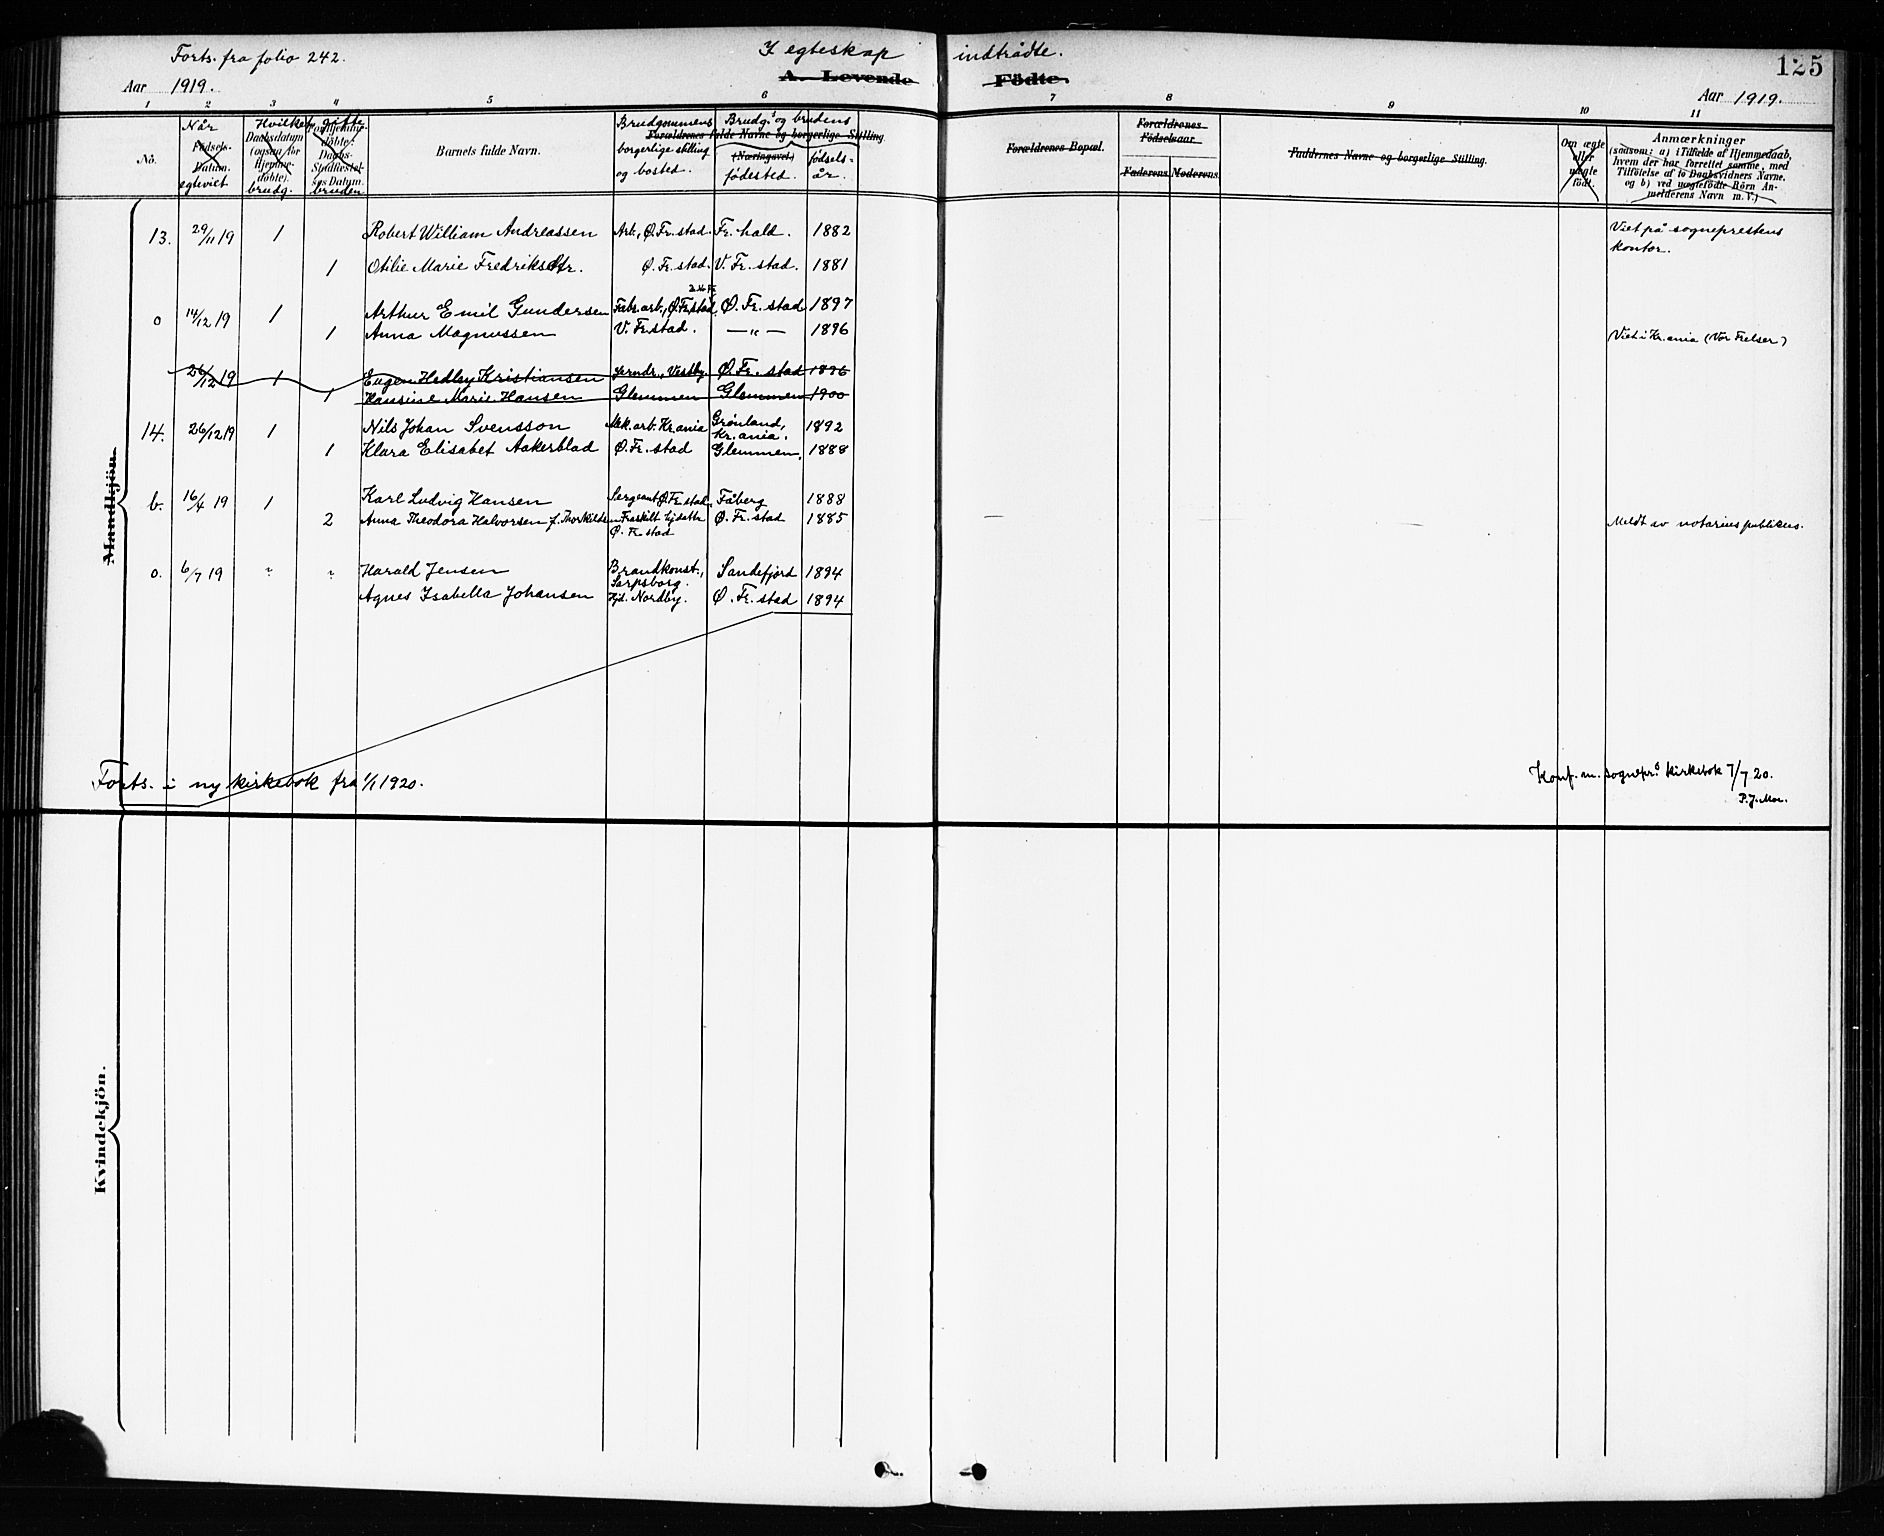 Forts. fra folio 242.
I egteskap indtrådte.
A. Levende Födte.
125
Aar 1919.
Aar 1919.
1 2 3 4 5 6 7 8 9 10 11
No.
Når
Födsels-
Datum.
egteviet
Hvilket gifte
Daabsdatum
(ogsaa for
Hjemme-
døbte).
brudg.
bruden
Barnets fulde Navn.
Forældrenes fulde Navne og borgerlige Stilling
(Næringsvei)
Brudgommens
borgerlige stilling
og bosted.
Brudg.s og brudens
fødested.
fødsels-
år.
Forældrenes Bopæl.
Forældrenes
Födselsaar.
Faderens Moderens
Faddernes Navne og borgerlige Stilling.
Om ægte
eller
uægte
født.
Anmærkninger
(saasom: a) i Tilfælde af Hjemmedaab,
hvem der har forrettet samme, med
Tilföielse af to Daabsvidners Navne,
og b) ved uægtefödte Börn An-
melderens Navn m. V.)
Mandkjön.
13. 29/11 19 1 Robert William Andreassen Arb., Ø. Fr. stad. Fr. hald. 1882 Viet på sogneprestens
kontor.
1 Otilie Marie Fredriksdtr. Ø. Fr. stad. V. Fr. stad. 1881
o 14/12 19 1 Arthur Emil Gundersen Fabr. arb., Ø. Fr. stad. Ø. Fr. stad 1897
1 Anna Magnussen V. Fr. stad. — " — 1896 Viet i Kr.ania (Vor Frelser)
26/12 19 1 Eugen Hedley Kristiansen Vestby. Ø. Fr. stad 1896
1 Hansine Marie Hansen Glemmen Glemmen 1900
14. 26/12 19 1 Nils Johan Svensson Mek. arb. Kr.ania Grønland,
Kr. ania. 1892
1 Klara Elisabet Aakerblad Ø. Fr. stad Glemmen. 1888
b. 16/4 19 1 Karl Ludvig Hansen Sergeant Ø. Fr. stad. Fåberg 1888
2 Anna Theodora Halvorsen f. Thorkildsen Fraskilt Ø. Fr. stad 1885 Meldt av notarius publicus.
Ø. Fr. stad
o. 6/7 19 ? ? Harald Jensen Brandkonst.,
Sarpsborg. Sandefjord 1894
Agnes Isabella Johansen Hjd. Nordby. Ø. Fr. stad 1894
Forts. i ny kirkebok fra 1/1 1920.
Konf. m. sognepr.s kirkebok 7/7 20.
P. J. Moe.
Kvindekjön.